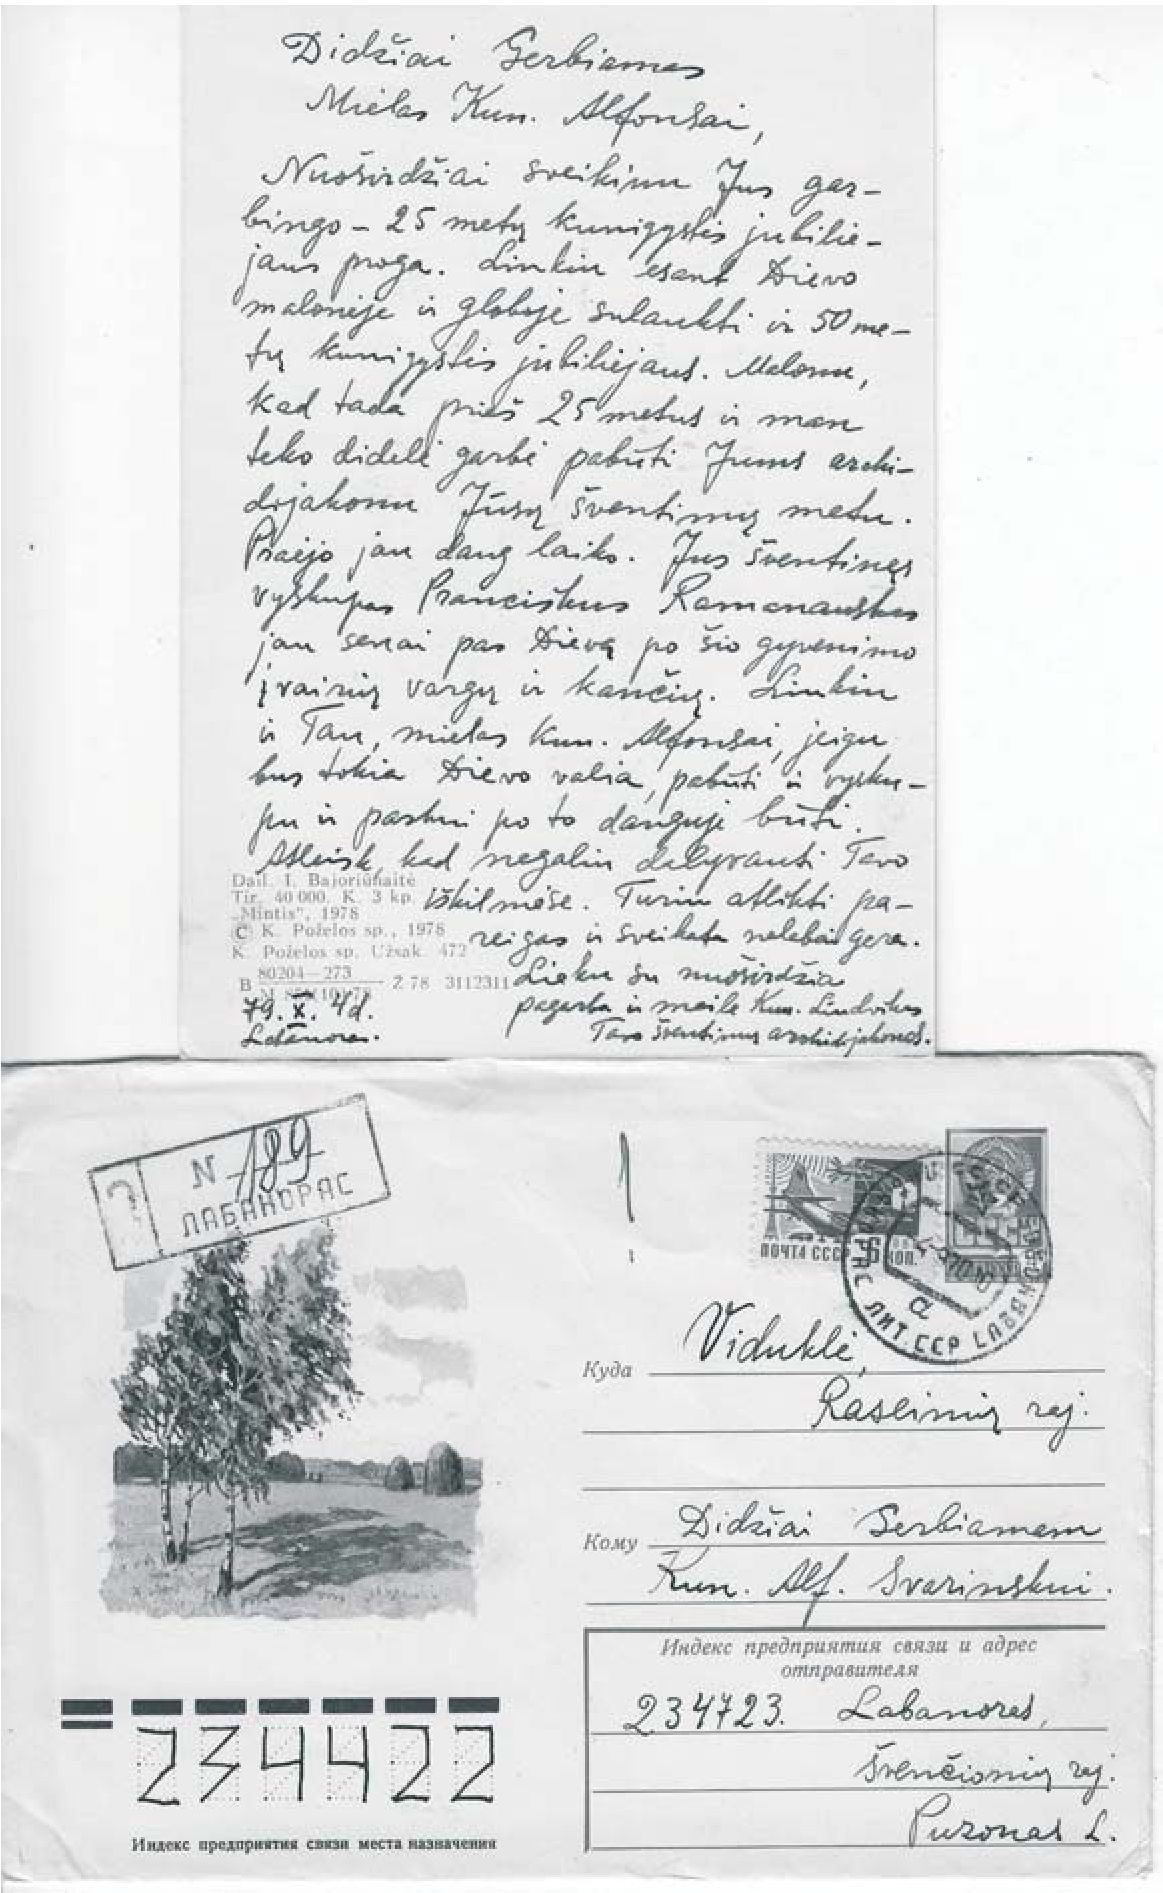 Didžiai Gerbiamas
Mielas Kun. Alfonsai,
Nuoširdžiai sveikinu Jus gar-
bingo – 25 metų kunigystės jubilie-
jaus proga. Linkiu esant Dievo
malonėje ir globoje sulaukti ir 50 me-
tų kunigystės jubiliejaus. Malonu,
kad tada prieš 25 metus ir man
teko didelė garbė pabūti Jums archi-
djakonu Jūsų šventimų metu.
Praėjo jau daug laiko. Jus šventinęs
vyskupas Pranciškus Ramanauskas
jau senai pas Dievą po šio gyvenimo
įvairių vargų ir kančių. Linkiu
ir Tau, mielas Kun. Alfonsai, jeigu
bus tokia Dievo valia, pabūti ir vysku-
pu ir paskui po to danguje būti.
Atleisk, kad negaliu dalyvauti Tavo
iškilmėse. Turiu atlikti pa-
reigas ir sveikata nelabai gera.
Lieku su nuoširdžia
pagarba ir meile Kun. Liudvikas
Tavo šventimų archidjakonas.
Dail. I. Bajoriūnaitė
Tir. 40 000. K. 3 kp.
„Mintis", 1978
© K. Poželos sp., 1978
K. Poželos sp. Užsak. 472
B 80204—273
Ž 78 3112311
79. X. 4 d.
Labanoras.
N 189
ЛАБАНОРАС
ПОЧТА СССР 6 КОП.
ЛИТ.ССР LABANORAS
а
Куда Viduklė,
Raseinių raj.
Кому Didžiai Gerbiamam
Kun. Alf. Svarinskui.
Индекс предприятия связи и адрес
отправителя
234723. Labanoras,
Švenčionių raj.
Puzonas L.
234422
Индекс предприятия связи места назначения